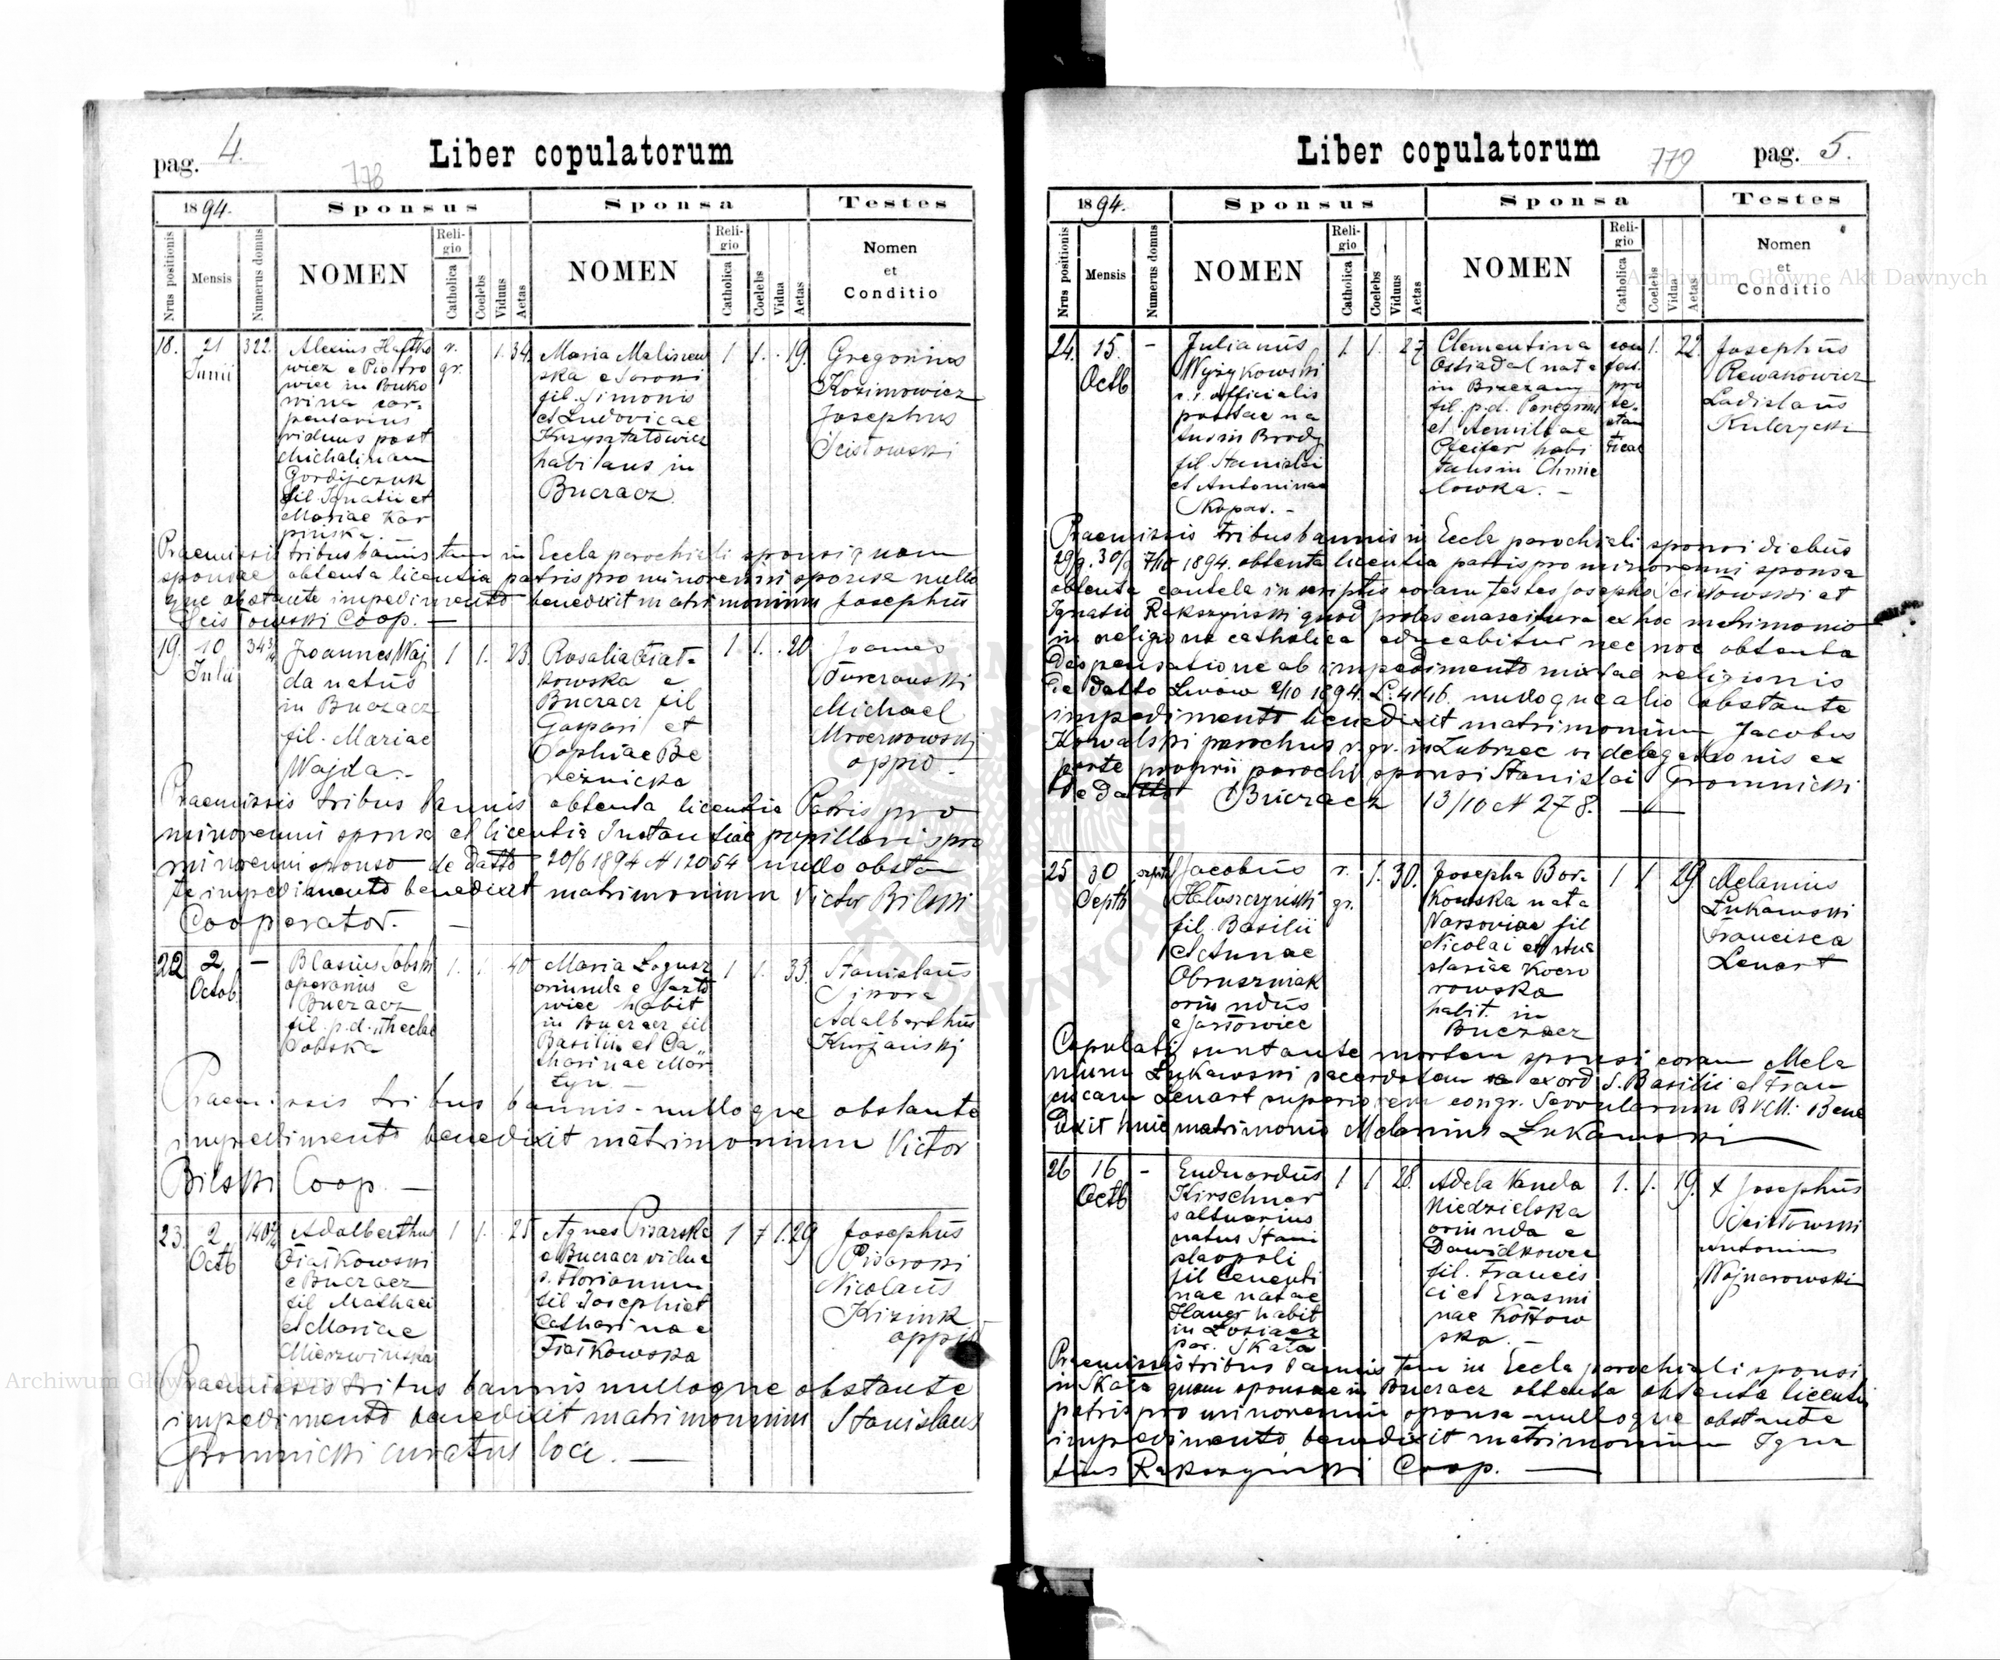 pag. 4.
778
Liber copulatorum
1894.
Sponsus
Sponsa
Testes
Nrus positionis
Mensis
Numerus domus
NOMEN
Religio
Catholica
Coelebs
Viduus
Aetas
NOMEN
Religio
Catholica
Coelebs
Vidua
Aetas
Nomen
et
Conditio
18.
21
Junii
322.
Alexius
wicz e Piotro
wiec in Buko
wina car-
pentarius
viduus post
Michalinam
Gordijczuk
fil Ignatii et
Mariae Kar
pinska.
r.
gr.
1. 34.
Maria Maliszew
ska e Soroki
fil. Simonis
et Ludovicae
Krzysztatowicz
habitans in
Buczacz
1 1. 19.
Gregorius
Kozimowicz
Josephus
Scisłowski
Praemissis tribus bannis tum in Eccla parochiali sponsi quam
sponsae obtenta licentia patris pro minorenni sponsa nullo
que obstante impedimento benedixit matrimonium Josephus
Scisłowski Coop. —
19.
10
Julii
343
Joannes Waj
da natus
in Buczacz
fil. Mariae
Wajda.-
1 1. 23.
Rosalia Fiat-
kowska e
Buczacz fil
Gaspari et
Sophiae Be
reznicka
1. 1. 20
Joannes
Turczanski
Michael
Mroczkowski
oppid.
Praemissis tribus bannis obtenta licentia Patris pro
minorenni sponsa et licentia Instantiae pupillari pro
minorenni sponso de datto 20/6 1894 N 12054 nullo obstan
te impedimento benedixit matrimonium Victor Bilski
Cooperator. —
22
2
Octob.
—
Blasius Sobski
operarius e
Buczacz
fil. p.d. Theclae
Sobska
1. 1. 40
Maria Łogusz
oriunda e Jazło
wiec habit
in Buczacz fil
Basilii et Ca-
tharinae Mar-
tyn. —
1 1. 33.
Stanislaus
Sikora
Adalberthus
Kurjanskj
Praemissis tribus bannis - nulloque obstante
impedimento benedixit matrimonium Victor
Bilski Coop. —
23.
2.
Octb
140
Adalberthus
Fiałkowski
e Buczacz
fil Mathaei
et Mariae
Mierzwinska
1 1. 25
Agnes Pisarska
e Buczacz vidua
p. Florianum
fil Josephi et
Catharinae
Fiałkowska
1 1. 29
Josephus
Pisarski
Nicolaus
Krizink
oppid
Praemissis tribus bannis nulloque obstante
impedimento benedixit matrimonium Stanislaus
Gromnicki curatus loci. —
Liber copulatorum
779
pag. 5.
1894.
Sponsus
Sponsa
Testes
Nrus positionis
Mensis
Numerus domus
NOMEN
Religio
Catholica
Coelebs
Viduus
Aetas
NOMEN
Religio
Catholica
Coelebs
Vidua
Aetas
Nomen
et
Conditio
24.
15.
Octb
—
Julianus
Wyzykowski
c.r. officialis
postae na
tus in Brody
fil Stanislai
et Antoninae
Skopar. -
1. 1. 27
Clementina
Ostiadal nata
in Brzezany
fil. p.d. Peregrini
et Aemiliae
Pfeifer habi
tans in Chmie
lowka. —
con
fes.
pro
te-
stan
ticae
1. 22.
Josephus
Rewakowicz
Ladislaus
Kulczycki
Praemissis tribus bannis in Eccla parochiali sponsi diebus
29/9. 30/9 7/10 1894. obtenta licentia patris pro minorenni sponsa
obtenta cautela in scriptis coram testes Josepho Scisłowski et
Ignatio Rakszynski quod proles enascitura ex hoc matrimonio
in religione catholica educabitur nec non obtenta
dispensatione ab impedimento mixtae religionis
de datto Lwow 2/10 1894. L: 4146. nulloque alio obstante
impedimento benedixit matrimonium Jacobus
Kowalski parochus r. gr. in Zubrzec vi delegationis ex
parte proprii parochi sponsi Stanislai Gromnicki
de datto Buczacz 13/10 N 278. —
25
30
Septb
Jacobus
Hałuszczynski
fil. Basilii
et Annae
Obruszniak
oriundus
e Jazłowiec
r.
gr.
1. 30.
Josepha Bor-
kowska nata
Varsoviae fil
Nicolai et Ana
stasiae Kocio
rowska
habit. in
Buczacz
1 1 29
Melanius
Łukawski
Francisca
Lenart
Copulati sunt ante mortem sponsi coram Mela
nium Łukawski sacerdotem ex ord S. Basilii et Fran
ciscam Lenart superiorem congr. Servularum BVM. Bene
dixit huic matrimonio Melanius Łukawski
26
16
Octb
-
Enduardus
Kirschner
saltuarius
natus Stani
slaopoli
fil Clementi
nae natae
Haugr habit
in Łosiacz
par. Skała
1 1 28.
Adela Wanda
Niedzielska
oriunda e
Dawidkowce
fil. Francis
ci et Erasmi
nae Kotłow
ska. —
1. 1. 19.
+ Josephus
Scisłowski
Antonius
Wojnarowski
Praemissis tribus bannis tum in Eccla parochiali sponsi
in Skała quam sponsae in Buczacz obtenta obtenta licentia
patris pro minorennis sponsa - nulloque obstante
impedimento benedixit matrimonium Igna
tius Rakszynski Coop. —
Archiwum Główne Akt Dawnych
Archiwum Główne Akt Dawnych